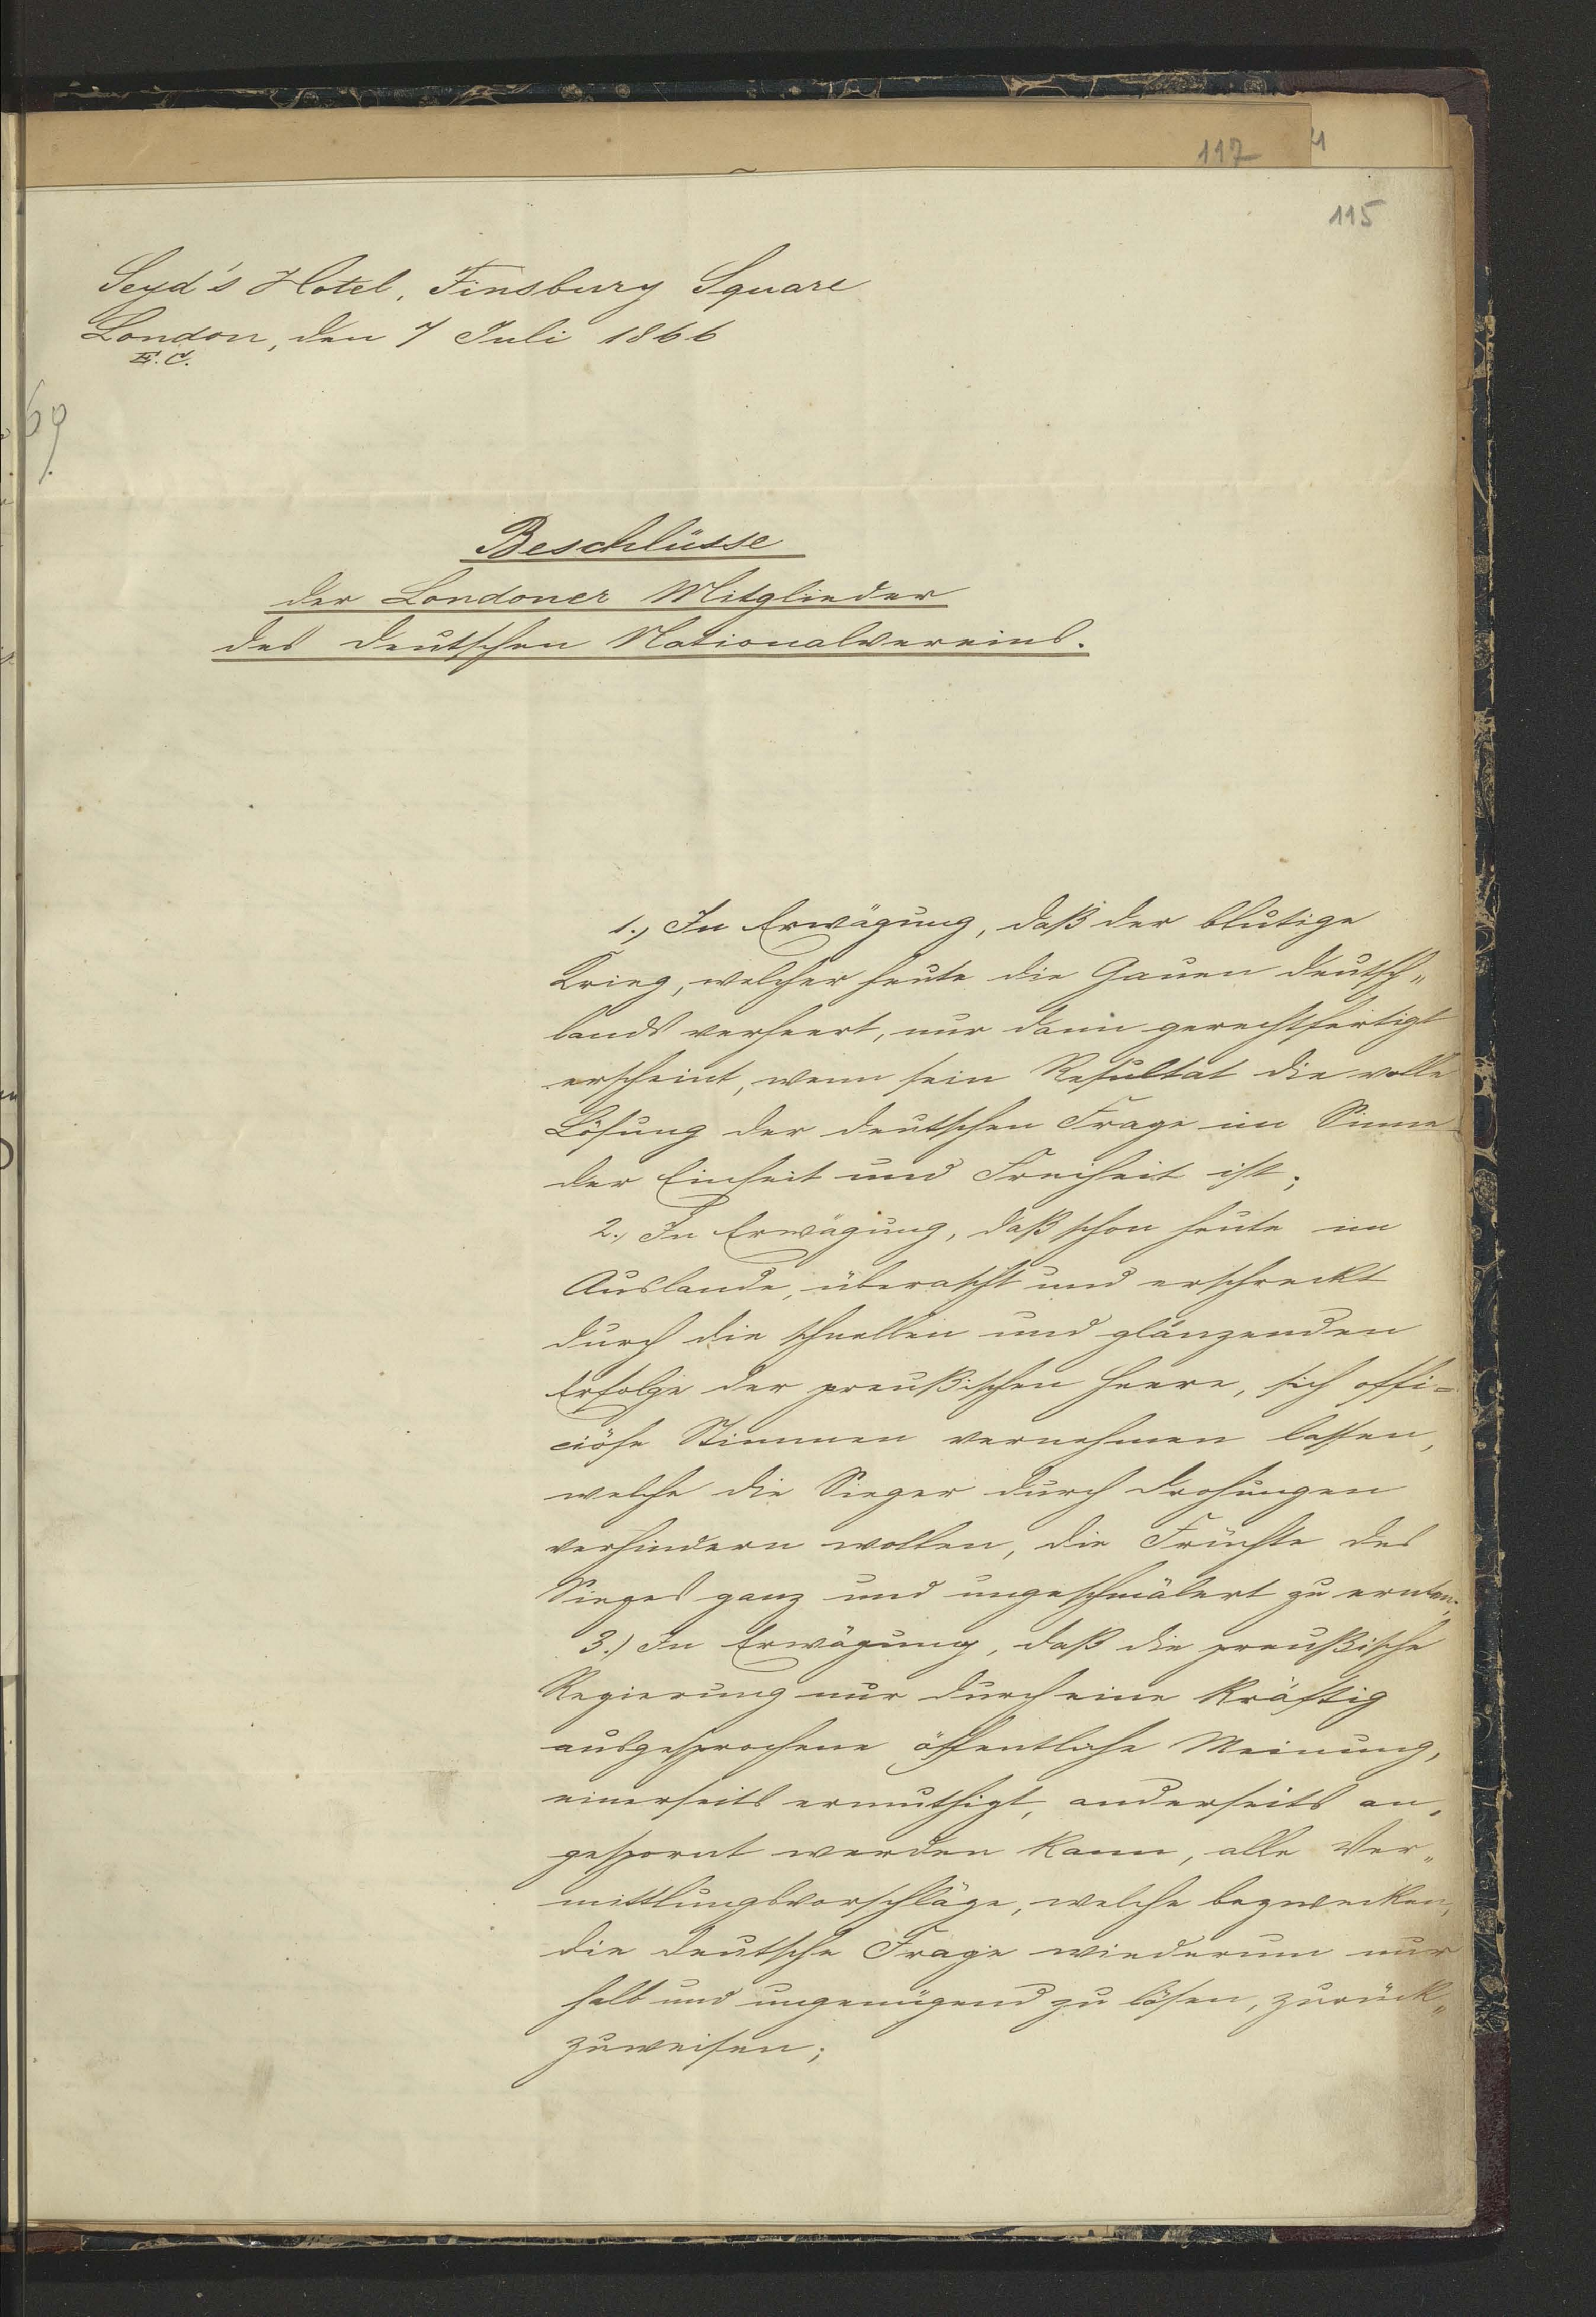 117
4
115
Seyd's Hotel, Finsbury Square
London, den 7 Juli 1866
E.C.
69
Beschlüsse
der Londoner Mitglieder
des deutschen Nationalvereins.
1., In Erwägung, daß der blutige
Krieg, welcher heute die Gauen Deutsch„
lands verheert, nur dann gerechtfertigt
erscheint, wenn sein Resultat die volle
Lösung der deutschen Frage im Sinne
der Einheit und Freiheit ist;
2., In Erwägung, daß schon heute im
Auslande, überascht und erschreckt
durch die schnellen und glänzenden
Erfolge der preußischen Heere, sich offi=
ciöse Stimmen vernehmen lassen,
welche die Sieger durch Drohungen
verhindern wollen, die Früchte des
Sieges ganz und ungeschmälert zu ernten;
3.) In Erwägung, daß die preußische
Regierung nur durch eine kräftig
ausgesprochene öffentliche Meinung,
einerseits ermuthigt, anderseits an„
gespornt werden kann, alle Ver„
mittlungsvorschläge, welche bezwecken,
die deutsche Frage wiederum nur
halb und ungenügend zu lösen, zurück„
zuweisen;